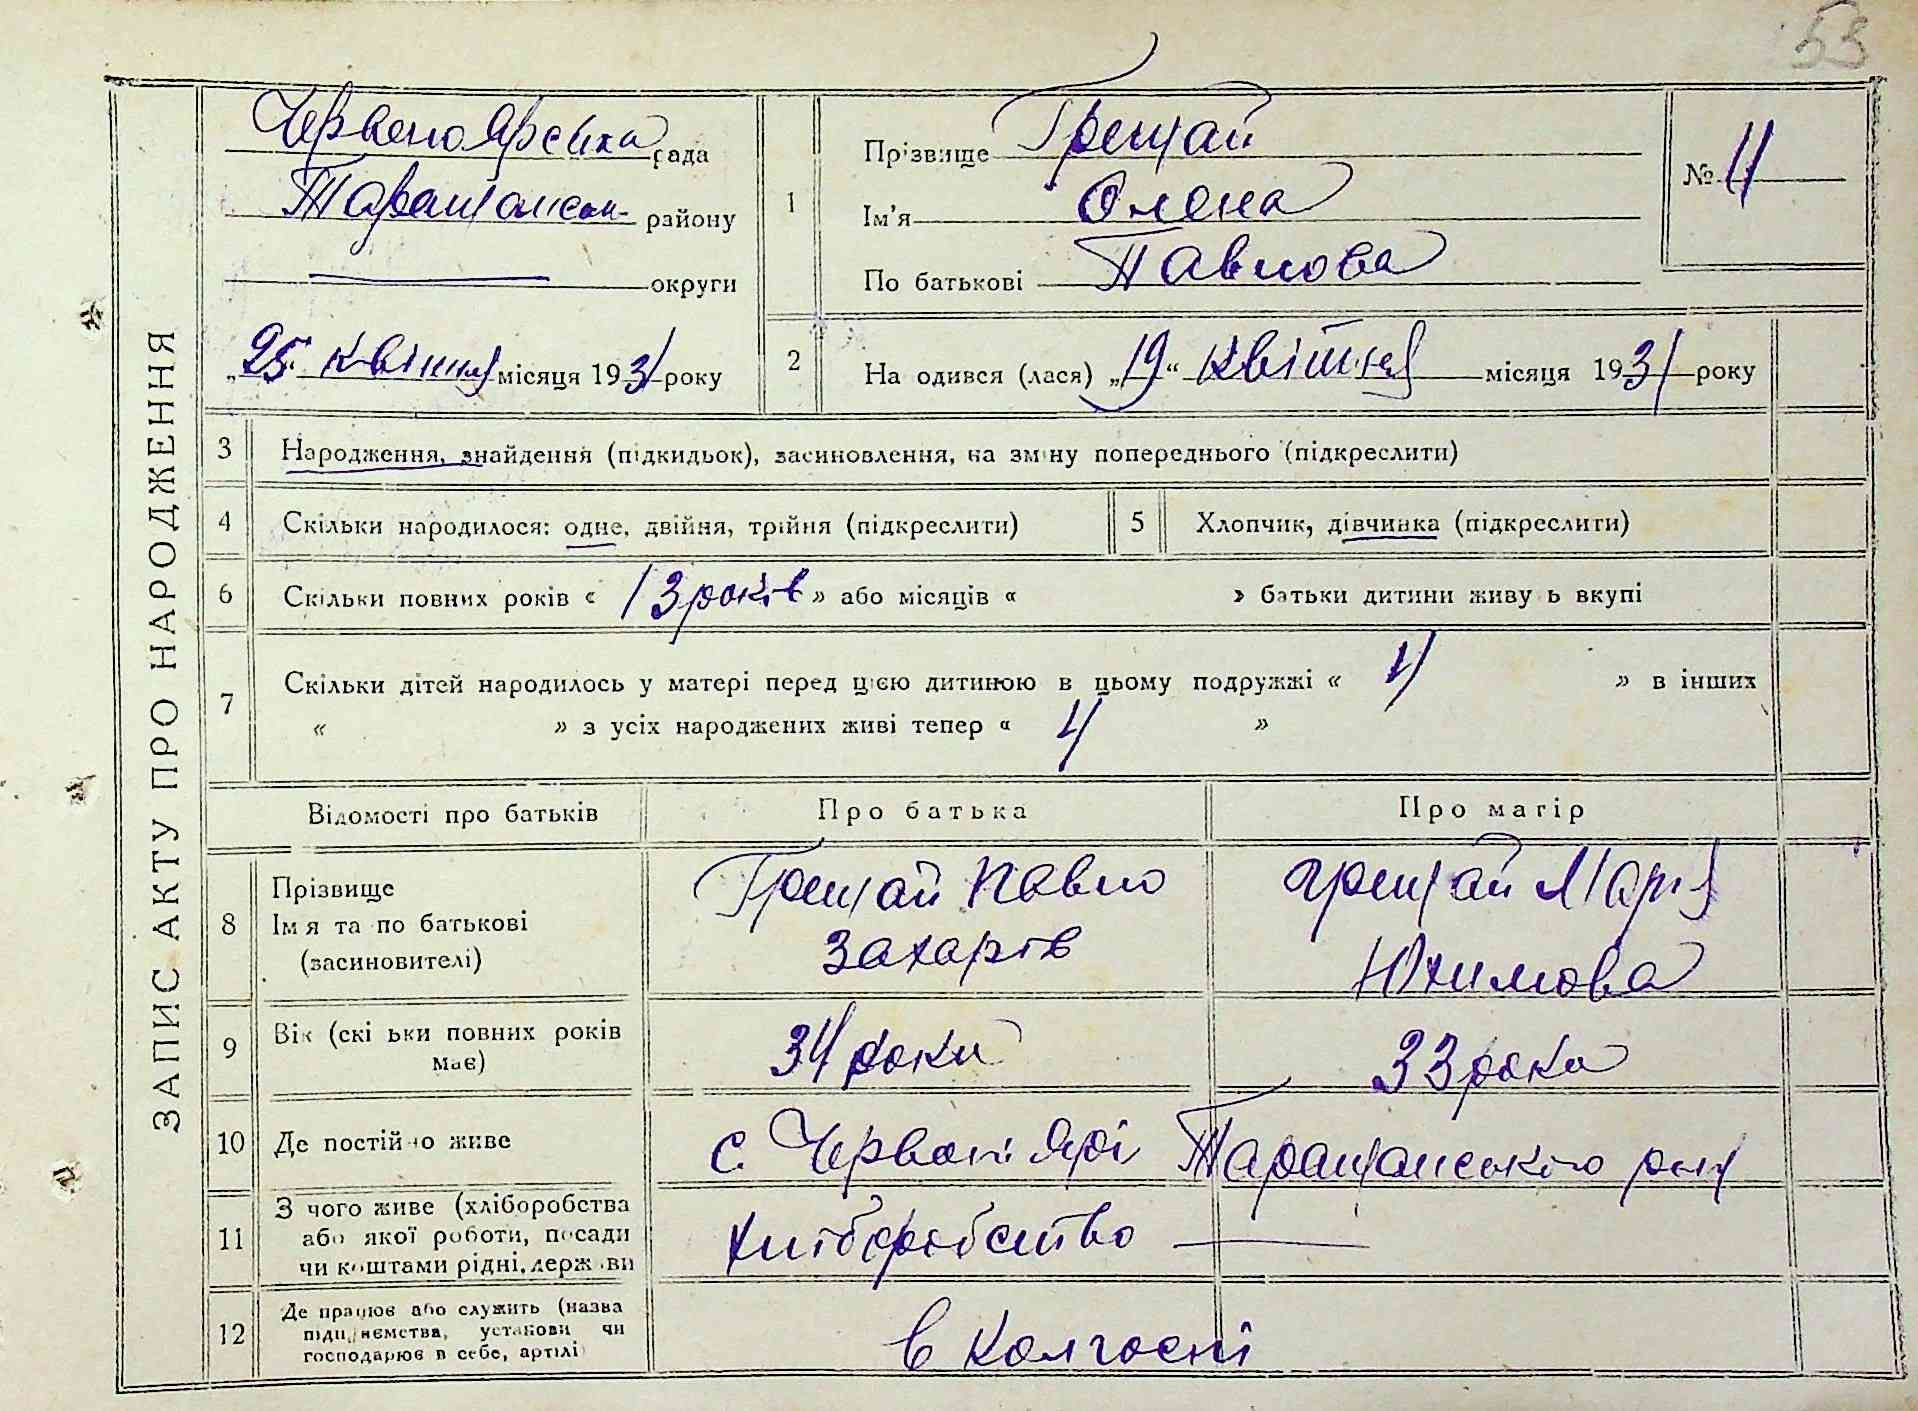 53
ЗАПИС АКТУ ПРО НАРОДЖЕННЯ
Червоноярська рада
Таращанськ району
округи
„25 квітня місяця 1931 року
1
Прізвище Грещай
Ім'я Олена
По батькові Павлова
№ 11
2 На одився (лася) „19“ квітня місяця 1931 року
3 Народження, знайдення (підкидьок), засиновлення, на зміну попереднього (підкреслити)
4 Скільки народилося: одне, двійня, трійня (підкреслити)
5 Хлопчик, дівчинка (підкреслити)
6 Скільки повних років « 13 років » або місяців « » батьки дитини живу ь вкупі
7 Скільки дітей народилось у матері перед цією дитиною в цьому подружжі « 4 » в інших
« » з усіх народжених живі тепер « 4 »
Відомості про батьків Про батька Про матір
8 Прізвище
Ім я та по батькові
(засиновителі)
Грещай Павло
Захарів
Грещай Марія
Юхимова
9 Вік (скі ьки повних років
має)
34 роки
33 роки
10 Де постійно живе
с. Червоні Ярі Таращанського р-ну
11 З чого живе (хліборобства
або якої роботи, посади
чи коштами рідні, держ ви
хліборобство —
12 Де працює або служить (назва
підприємства, установи чи
господарює в себе, артілі)
в колгоспі